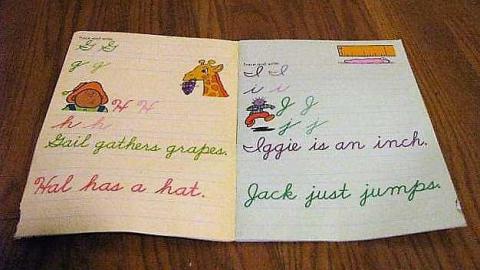 Trace and write.
G G
g g
H H
h h
Gail gathers grapes.
Hal has a hat.
Trace and write.
I I
i i
J J
j j
Iggie is an inch.
Jack just jumps.